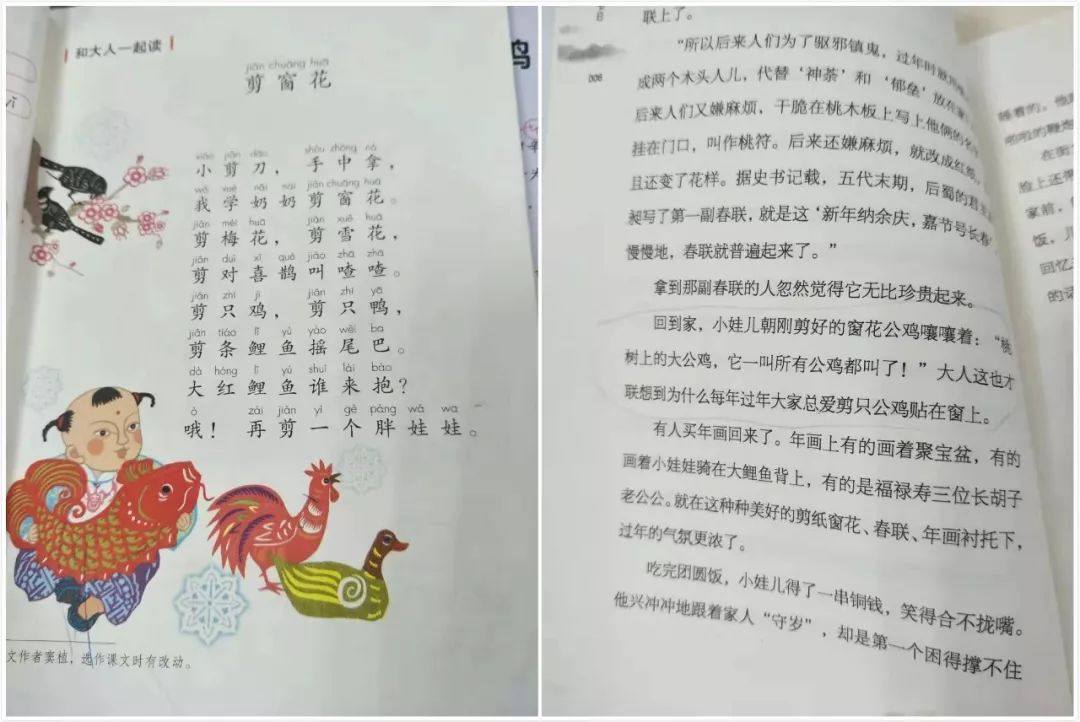 和大人一起读
jiǎn chuāng huā
剪窗花
xiǎo jiǎn dāo shǒu zhōng ná
小剪刀，手中拿，
wǒ xué nǎi nai jiǎn chuāng huā
我学奶奶剪窗花。
jiǎn méi huā jiǎn xuě huā
剪梅花，剪雪花，
jiǎn duì xǐ què jiào zhā zhā
剪对喜鹊叫喳喳。
jiǎn zhī jī jiǎn zhī yā
剪只鸡，剪只鸭，
jiǎn tiáo lǐ yú yáo wěi ba
剪条鲤鱼摇尾巴。
dà hóng lǐ yú shuí lái bào
大红鲤鱼谁来抱？
ò zài jiǎn yí gè pàng wá wa
哦！再剪一个胖娃娃。
文作者窦植，选作课文时有改动。
鸡
联上了。
006
“所以后来人们为了驱邪镇鬼，过年时就用
成两个木头人儿，代替‘神荼’和‘郁垒’放在家
后来人们又嫌麻烦，干脆在桃木板上写上他俩的名字
挂在门口，叫作桃符。后来还嫌麻烦，就改成红纸，
且还变了花样。据史书记载，五代末期，后蜀的君主
昶写了第一副春联，就是这‘新年纳余庆，嘉节号长春’
慢慢地，春联就普遍起来了。”
拿到那副春联的人忽然觉得它无比珍贵起来。
回到家，小娃儿朝刚剪好的窗花公鸡嚷嚷着：“桃
树上的大公鸡，它一叫所有公鸡都叫了！”大人这也才
联想到为什么每年过年大家总爱剪只公鸡贴在窗上。
有人买年画回来了。年画上有的画着聚宝盆，有的
画着小娃娃骑在大鲤鱼背上，有的是福禄寿三位长胡子
老公公。就在这种种美好的剪纸窗花、春联、年画衬托下，
过年的气氛更浓了。
吃完团圆饭，小娃儿得了一串铜钱，笑得合不拢嘴。
他兴冲冲地跟着家人“守岁”，却是第一个困得撑不住
睡着的。他
啪啦的鞭炮
在街
脸上还
家前，
饭，儿
回忆
的话